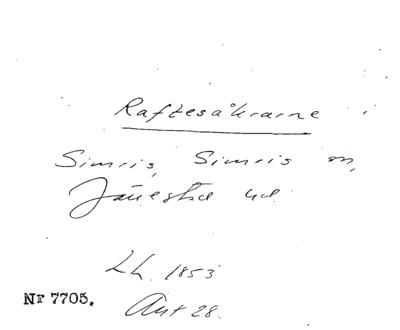 Raftesåkrarne
Simris, Simris sn,
Järrestad hd
Lh. 1853
Nr 7705.
Ant 28.